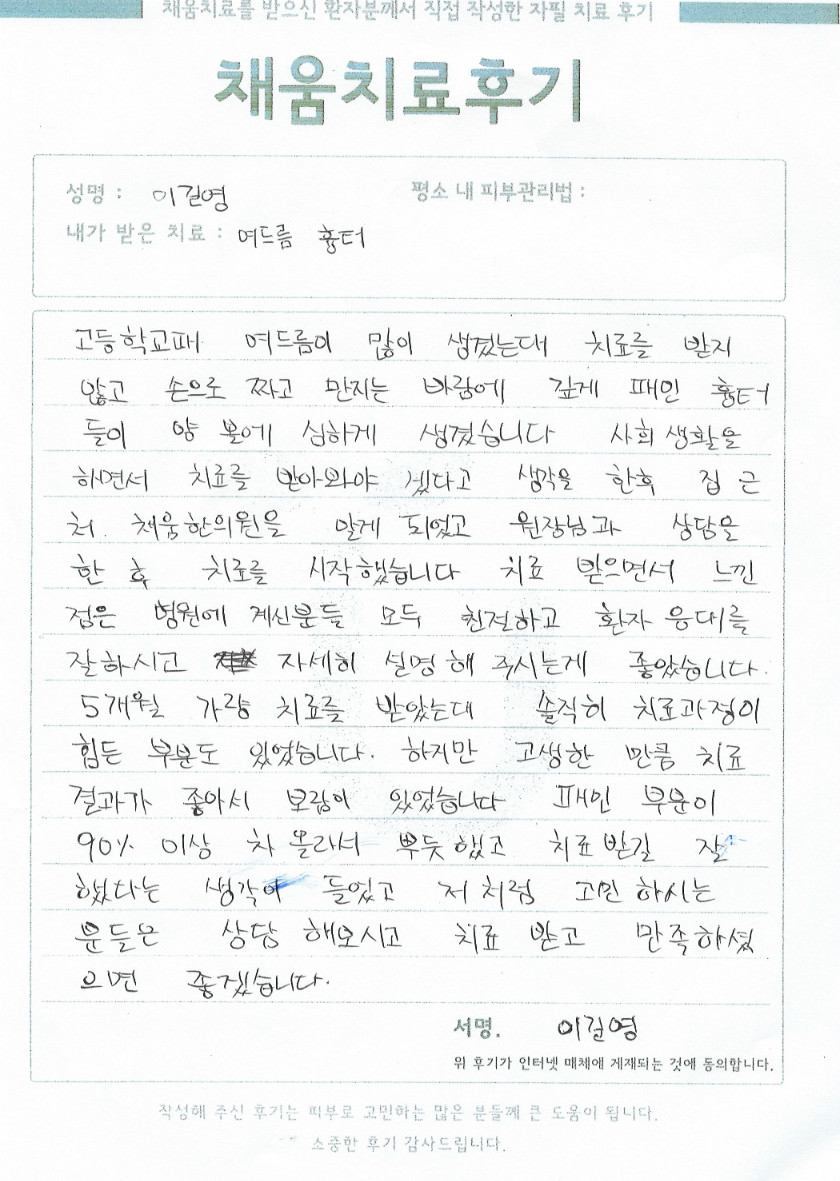 채움치료를 받으신 환자분께서 직접 작성한 자필 치료 후기
채움치료후기
성명 : 이길영 평소 내 피부관리법 :
내가 받은 치료 : 여드름 흉터
고등학교때 여드름이 많이 생겼는대 치료를 받지
않고 손으로 짜고 만지는 바람에 깊게 패인 흉터
들이 양 볼에 심하게 생겼습니다 사회생활을
하면서 치료를 받아와야 겠다고 생각을 한후 집 근
처 채움한의원을 알게 되었고 원장님과 상담을
한 후 치료를 시작했습니다 치료 받으면서 느낀
점은 병원에 계신분들 모두 친절하고 환자 응대를
잘하시고 자세히 설명해 주시는게 좋았습니다.
5개월 가량 치료를 받았는대 솔직히 치료과정이
힘든 부분도 있었습니다. 하지만 고생한 만큼 치료
결과가 좋아서 보람이 있었습니다 패인 부분이
90% 이상 차 올라서 뿌듯했고 치료받길 잘
했다는 생각이 들었고 저처럼 고민하시는
분들은 상담 해보시고 치료 받고 만족하셨
으면 좋겠습니다.
서명. 이길영
위 후기가 인터넷 매체에 게재되는 것에 동의합니다.
작성해 주신 후기는 피부로 고민하는 많은 분들께 큰 도움이 됩니다.
소중한 후기 감사드립니다.